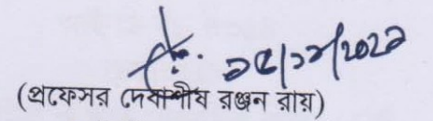 ২৫/১১/২০২১
(প্রফেসর দেবাশীষ রঞ্জন রায়)